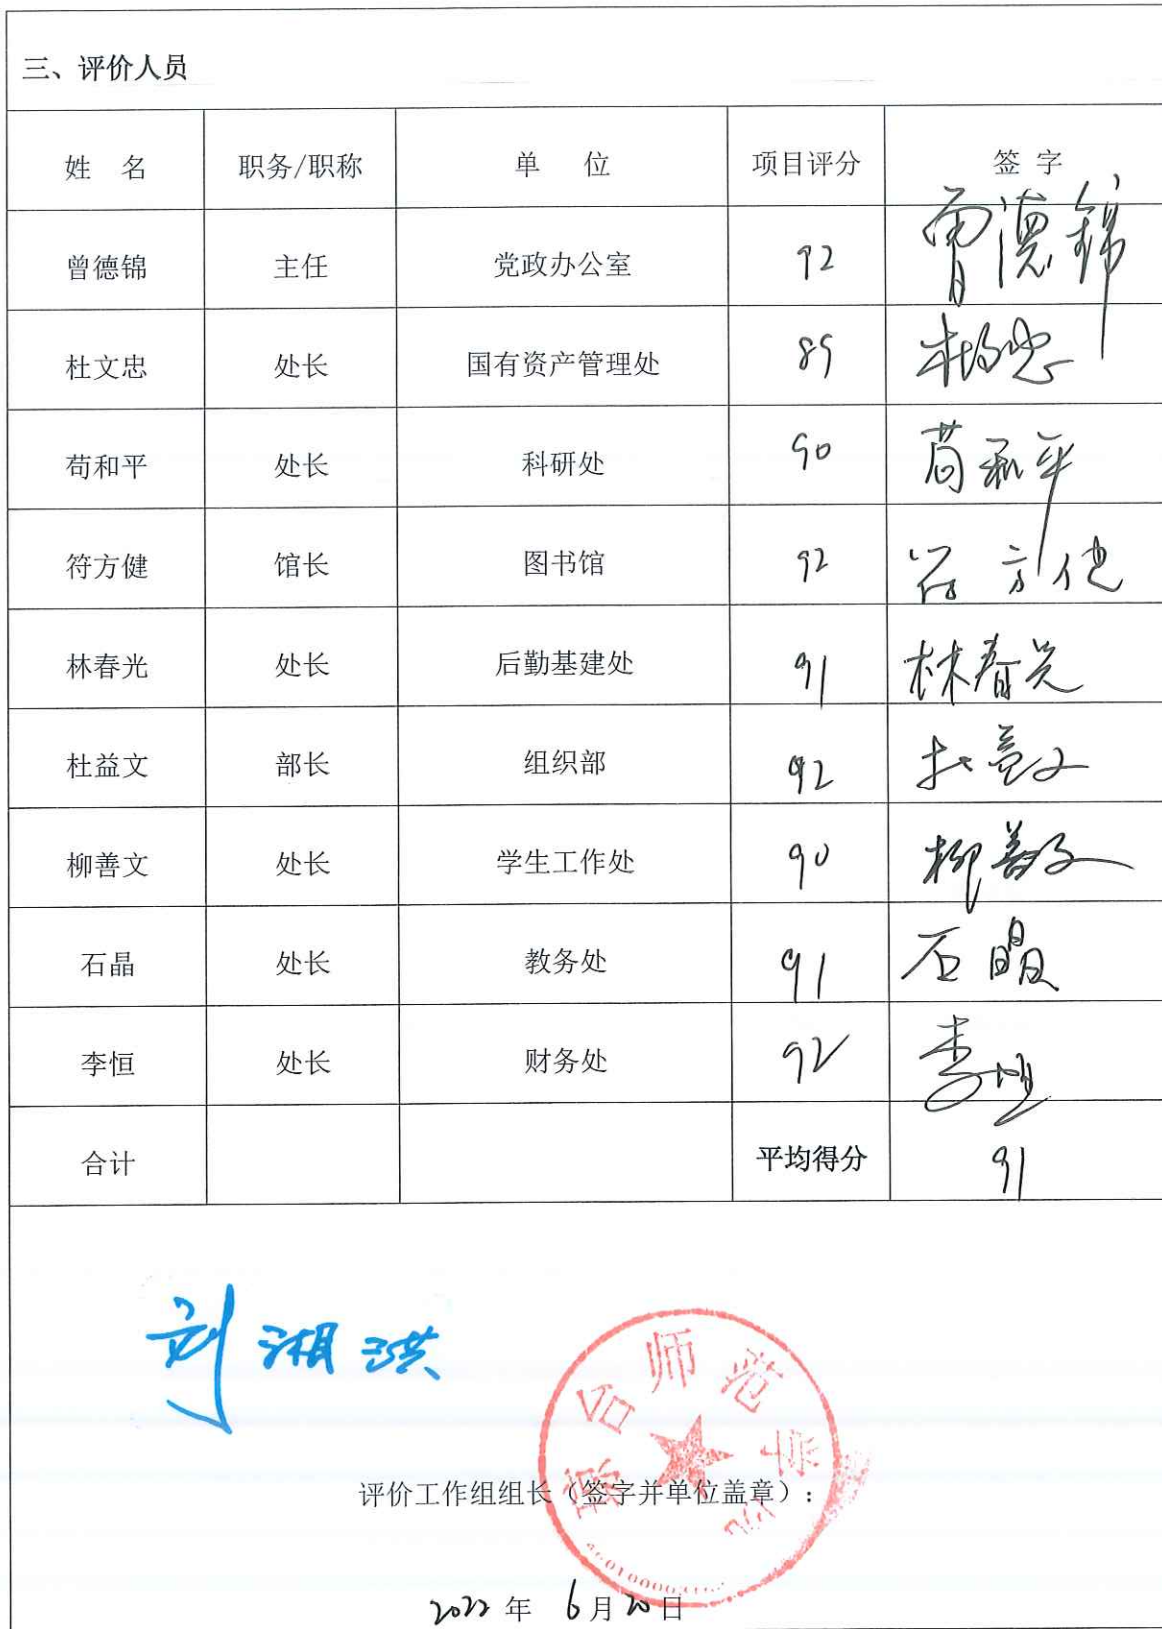 三、评价人员
姓 名 职务/职称 单 位 项目评分 签 字
曾德锦 主任 党政办公室 92 曾德锦
杜文忠 处长 国有资产管理处 89 杜文忠
苟和平 处长 科研处 90 苟和平
符方健 馆长 图书馆 92 符方健
林春光 处长 后勤基建处 91 林春光
杜益文 部长 组织部 92 杜益文
柳善文 处长 学生工作处 90 柳善文
石晶 处长 教务处 91 石晶
李恒 处长 财务处 92 李恒
合计 平均得分 91
刘湘洪
琼台师范学院
评价工作组组长（签字并单位盖章）：
2022 年 6 月 20 日